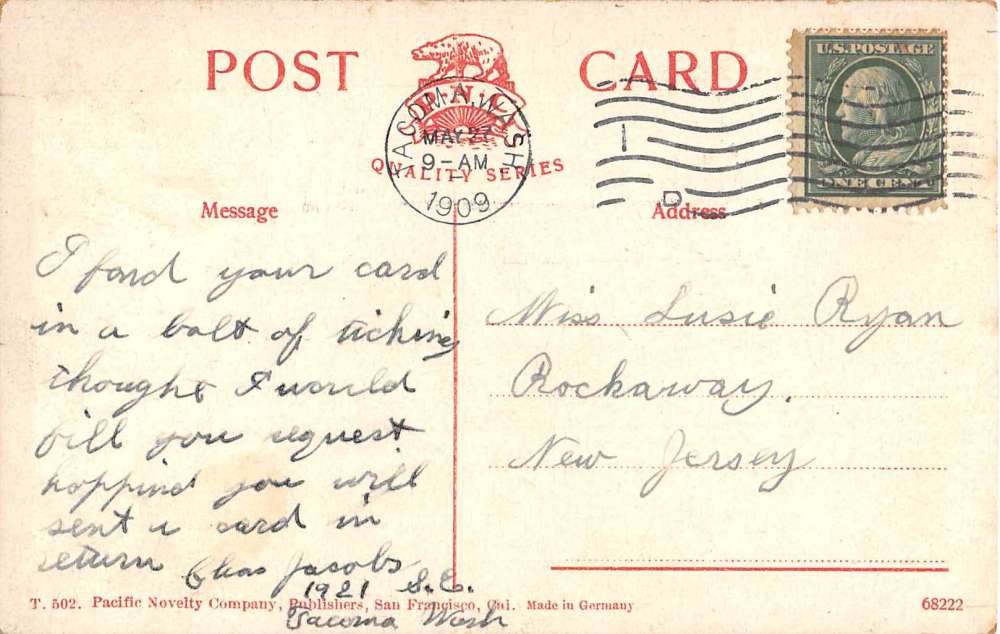 POST CARD
P. N. C.
QUALITY SERIES
TACOMA, WASH
MAY 27
9-AM
1909
D
U.S. POSTAGE
ONE CENT
Message
Address
I fond your card
in a bolt of ticking
thought I would
fill you request
hopping you will
sent a card in
return
Chas Jacobs
1921 S.C.
Tacoma Wash
Miss Susie Ryan
Rockaway.
New Jersey
T. 502. Pacific Novelty Company, Publishers, San Francisco, Cal. Made in Germany
68222